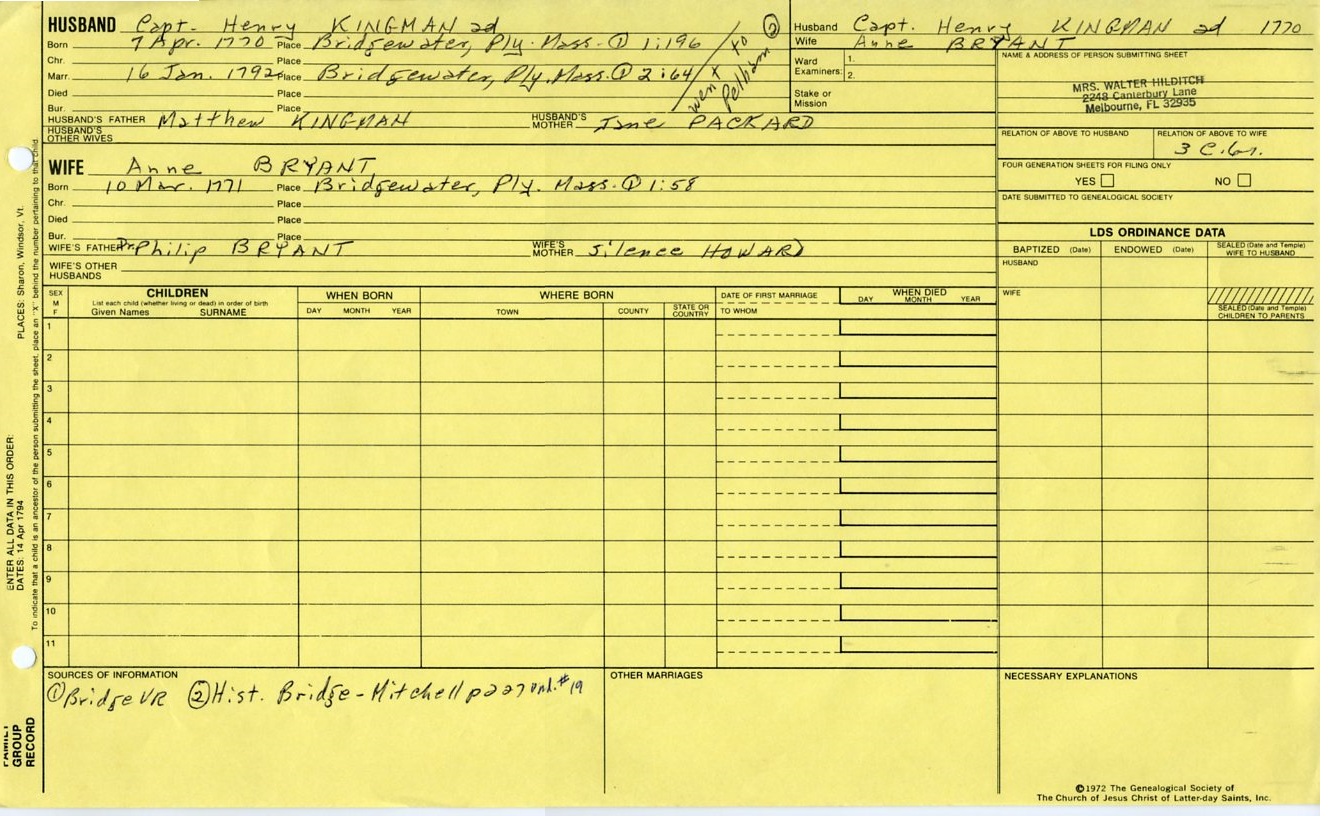 HUSBAND Capt. Henry KINGMAN ad
Born 7 Apr. 1770 Place Bridgewater, Ply. Mass. ① 1:196
Chr. Place
Marr. 16 Jan. 1792 Place Bridgewater, Ply. Mass. ① 2:64
Died Place
Bur. Place
went to Pelham ②
HUSBAND'S FATHER Matthew KINGMAN HUSBAND'S MOTHER Jane PACKARD
HUSBAND'S OTHER WIVES
WIFE Anne BRYANT
Born 10 Mar. 1771 Place Bridgewater, Ply. Mass. ① 1:58
Chr. Place
Died Place
Bur. Place
WIFE'S FATHER Dr. Philip BRYANT WIFE'S MOTHER Silence HOWARD
WIFE'S OTHER HUSBANDS
Husband Capt. Henry KINGMAN ad 1770
Wife Anne BRYANT
Ward Examiners: 1.
2.
Stake or Mission
NAME & ADDRESS OF PERSON SUBMITTING SHEET
MRS. WALTER HILDITCH
2248 Canterbury Lane
Melbourne, FL 32935
RELATION OF ABOVE TO HUSBAND RELATION OF ABOVE TO WIFE
3 C. 6r.
FOUR GENERATION SHEETS FOR FILING ONLY
YES NO
DATE SUBMITTED TO GENEALOGICAL SOCIETY
LDS ORDINANCE DATA
BAPTIZED (Date) ENDOWED (Date) SEALED (Date and Temple) WIFE TO HUSBAND
HUSBAND
WIFE
SEALED (Date and Temple) CHILDREN TO PARENTS
SEX M F
CHILDREN
List each child (whether living or dead) in order of birth
Given Names SURNAME
WHEN BORN
DAY MONTH YEAR
WHERE BORN
TOWN COUNTY STATE OR COUNTRY
DATE OF FIRST MARRIAGE
TO WHOM
WHEN DIED
DAY MONTH YEAR
1
2
3
4
5
6
7
8
9
10
11
SOURCES OF INFORMATION
①Bridge VR ②Hist. Bridge - Mitchell p227 unl. #19
OTHER MARRIAGES
NECESSARY EXPLANATIONS
©1972 The Genealogical Society of
The Church of Jesus Christ of Latter-day Saints, Inc.
ENTER ALL DATA IN THIS ORDER:
DATES: 14 Apr 1794
PLACES: Sharon, Windsor, Vt.
To indicate that a child is an ancestor of the person submitting the sheet, place an "X" behind the number pertaining to that child.
FAMILY
GROUP
RECORD